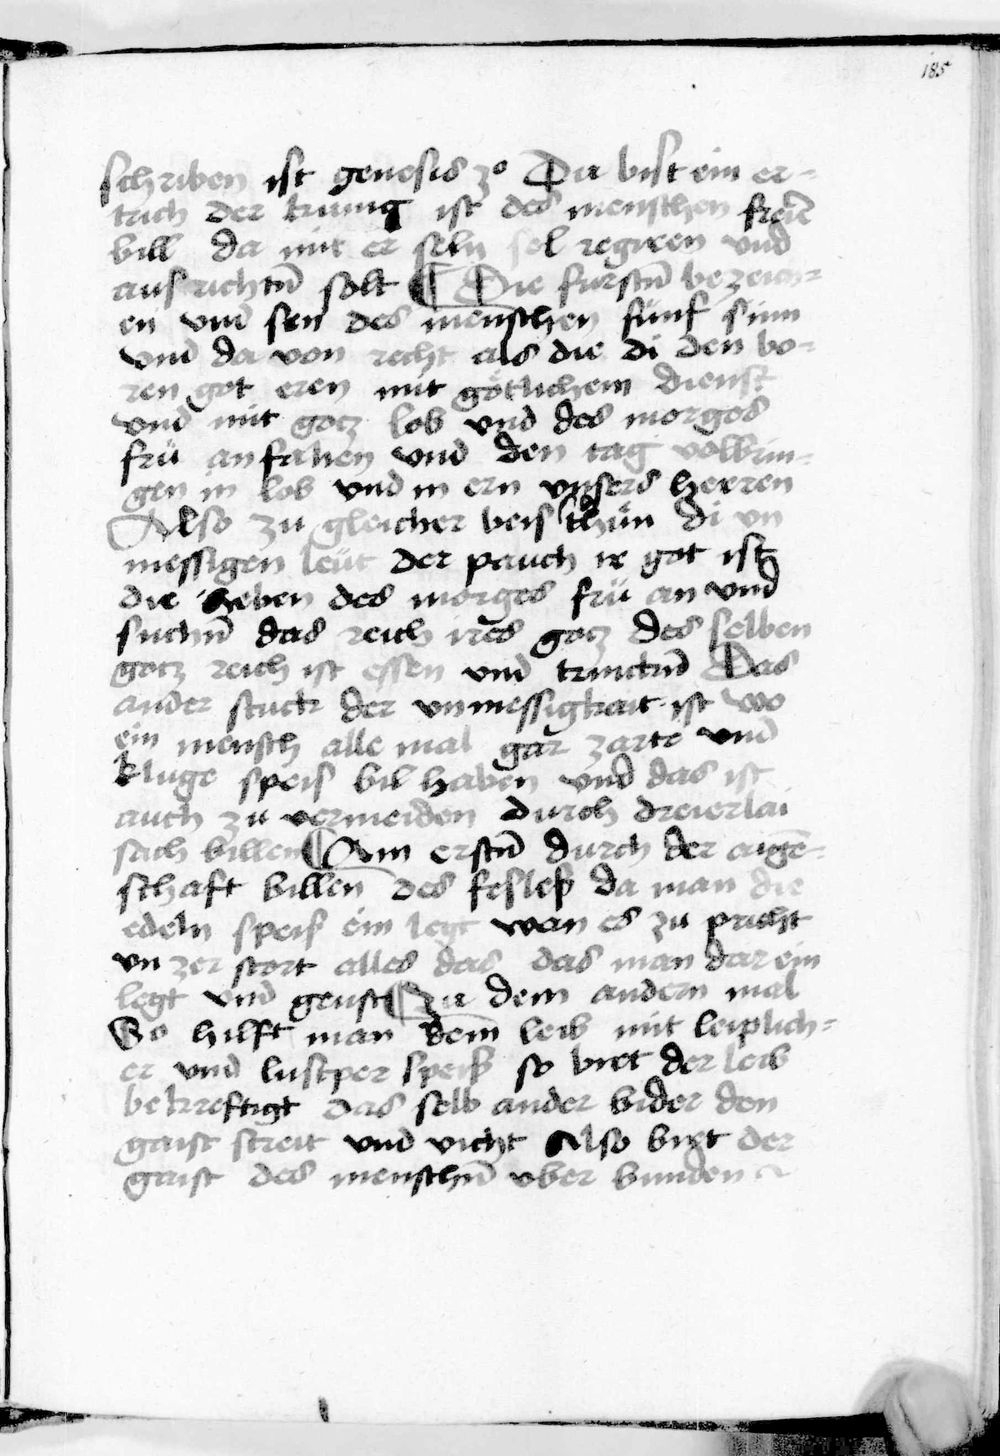 185
schriben ist genesis 3o Du bist ein er-
trich der kunig ist des menschen freie
bill da mit er seln sol regiren und
aus richtn̄ solt ¶ Die furstn̄ bezeich-
en und sen des menschen fünf sinn
und da von recht als die di den bo-
ren got eren mit götlichem dienst
und mit gotz lob und des morges
frü an fahen und den tag volbrin-
gen in lob und in ern unsers herren
Also zu gleicher beis thün di un
messigen leüt der pauch ir got ist
die heben des morges frü an und
suchn̄ das reich ires gotz des selben
gotz reich ist essen und trinckn̄ Das
ander stuck der unmessigkait ist wo
ein mensch alle mal gar zarte und
kluge speis bil haben und das ist
auch zu vermeiden durch dreierlai
sach billen ¶ Am erstn̄ durch der aigē-
schaft billen des fesleß da man die
edeln speis ein legt wan es zu pricht
un zer stort alles das das man dar ein
legt und geust ¶ Zu dem andern mal
So hilft man dem leib mit leiplich-
er und lustper speiß so birt der leib
bekreftigt das selb ander bider den
gaist streit und vicht Also birt der
gaist des menschn̄ uber bunden